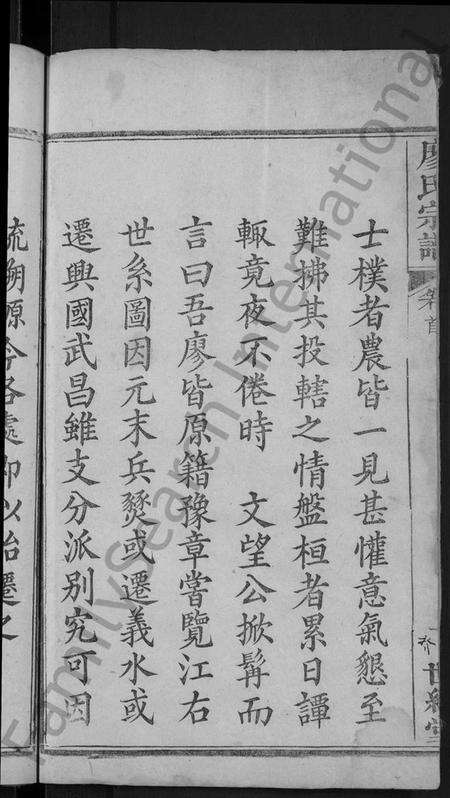 廖氏宗譜
卷首
世綵堂
士樸者農皆一見甚懽意氣懇至
難拂其投轄之情盤桓者累日譚
輒竟夜不倦時　文望公掀髯而
言曰吾廖皆原籍豫章嘗覽江右
世系圖因元末兵燹或遷義水或
遷興國武昌雖支分派別究可因
流溯源今各處即以始遷之
FamilySearch International